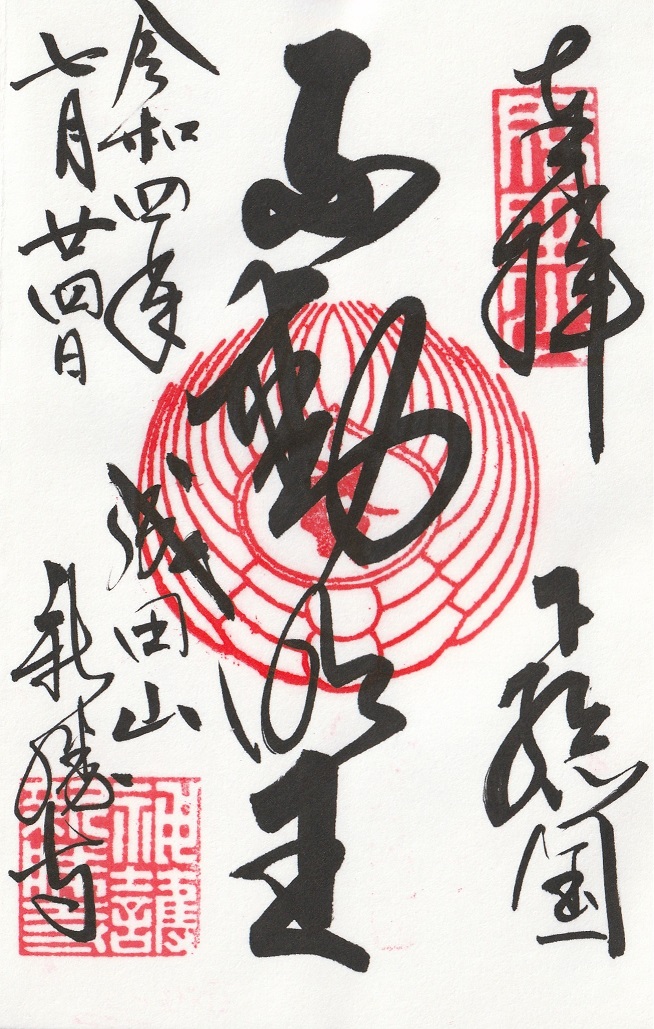 奉拝
下総国
不動明王
令和四年
七月廿四日
成田山
新勝寺